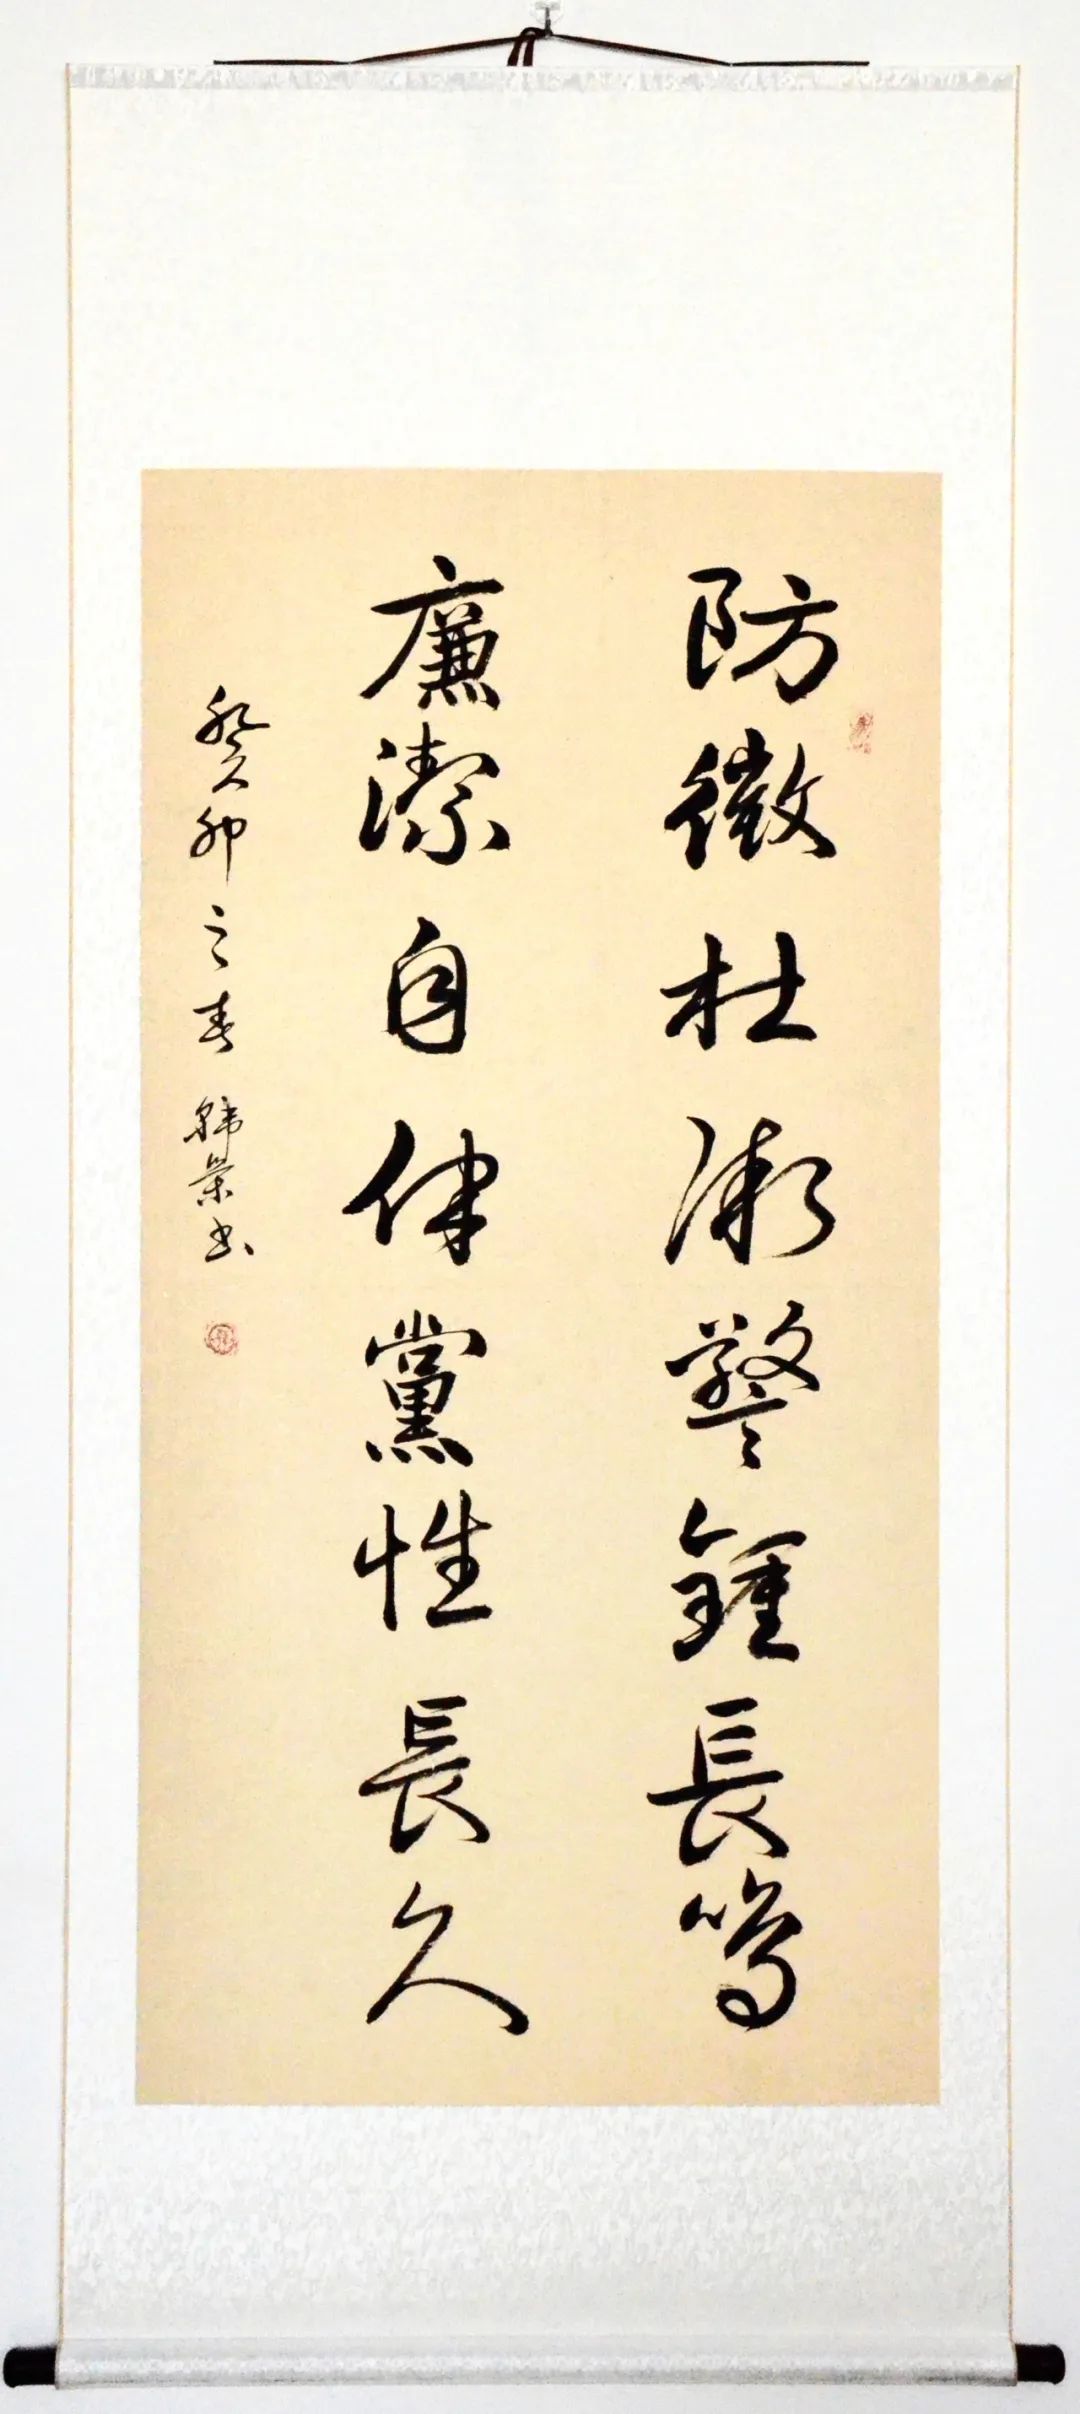 防微杜漸警鍾長鳴
廉潔自律黨性長久
癸卯之春韩荣書